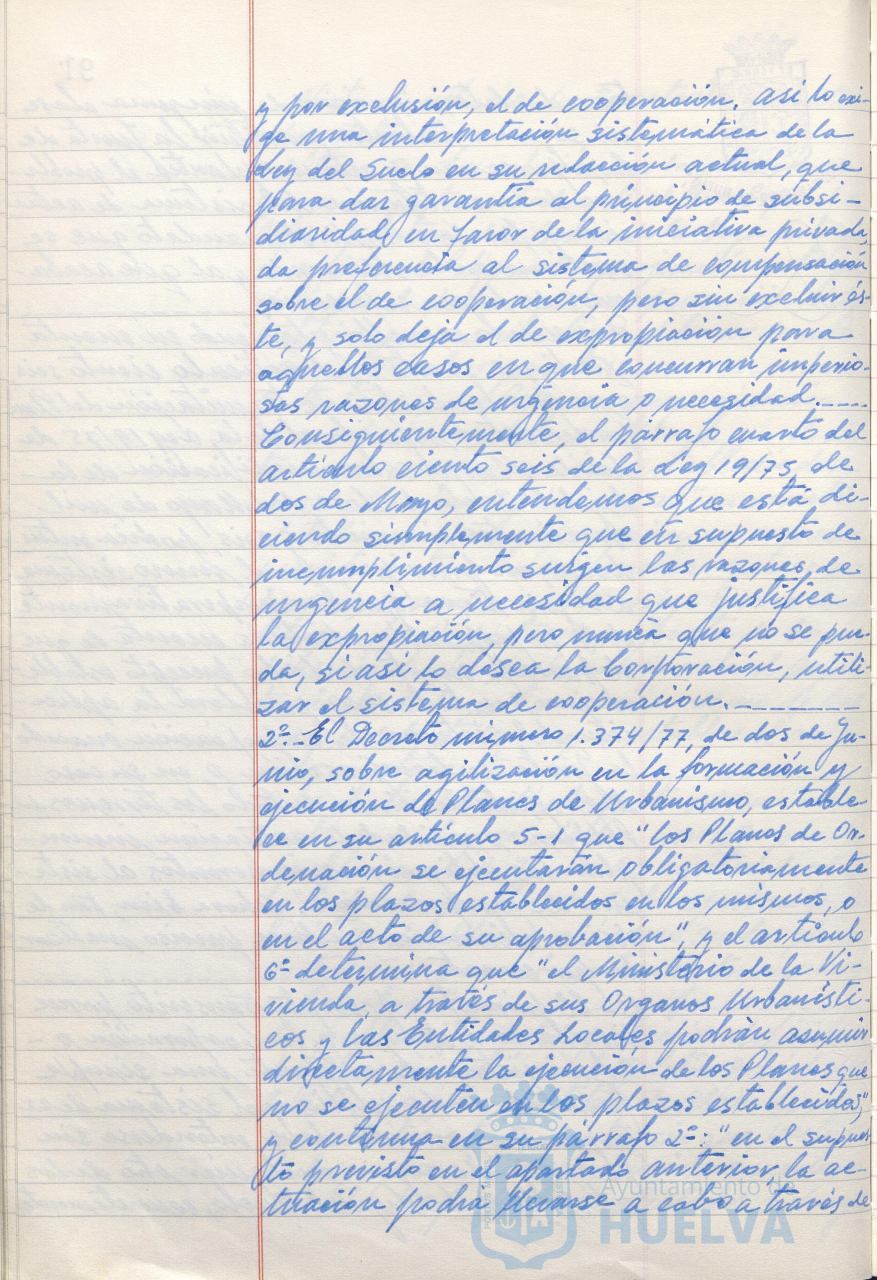 y por exclusión, el de cooperación. Así lo exi-
ge una interpretación sistemática de la
Ley del Suelo en su redacción actual, que
para dar garantía al principio de subsi-
diaridad en favor de la iniciativa privada,
da preferencia al sistema de compensación
sobre el de cooperación, pero sin excluir és-
te, y solo deja el de expropiación para
aquellos casos en que concurran imperio-
sas razones de urgencia o necesidad.----
Consiguientemente, el párrafo cuarto del
artículo ciento seis de la Ley 19/75, de
dos de Mayo, entendemos que está di-
ciendo simplemente que en supuesto de
incumplimiento surgen las razones de
urgencia a necesidad que justifica
la expropiación, pero nunca que no se pue-
da, si así lo desea la Corporación, utili-
zar el sistema de cooperación.---------
2º.- El Decreto número 1.374/77, de dos de Ju-
nio, sobre agilización en la formación y
ejecución de Planes de Urbanismo, estable-
ce en su artículo 5-1 que "los Planes de Or-
denación se ejecutarán obligatoriamente
en los plazos establecidos en los mismos, o
en el acto de su aprobación", y el artículo
6º determina que "el Ministerio de la Vi-
vienda, a través de sus Organos Urbanísti-
cos y las Entidades Locales podrán asumir
directamente la ejecución de los Planes que
no se ejecuten en los plazos establecidos",
y continua en su párrafo 2º: "en el supues-
to previsto en el apartado anterior, la ac-
tuación podrá llevarse a cabo a través de
Ayuntamiento de
HUELVA